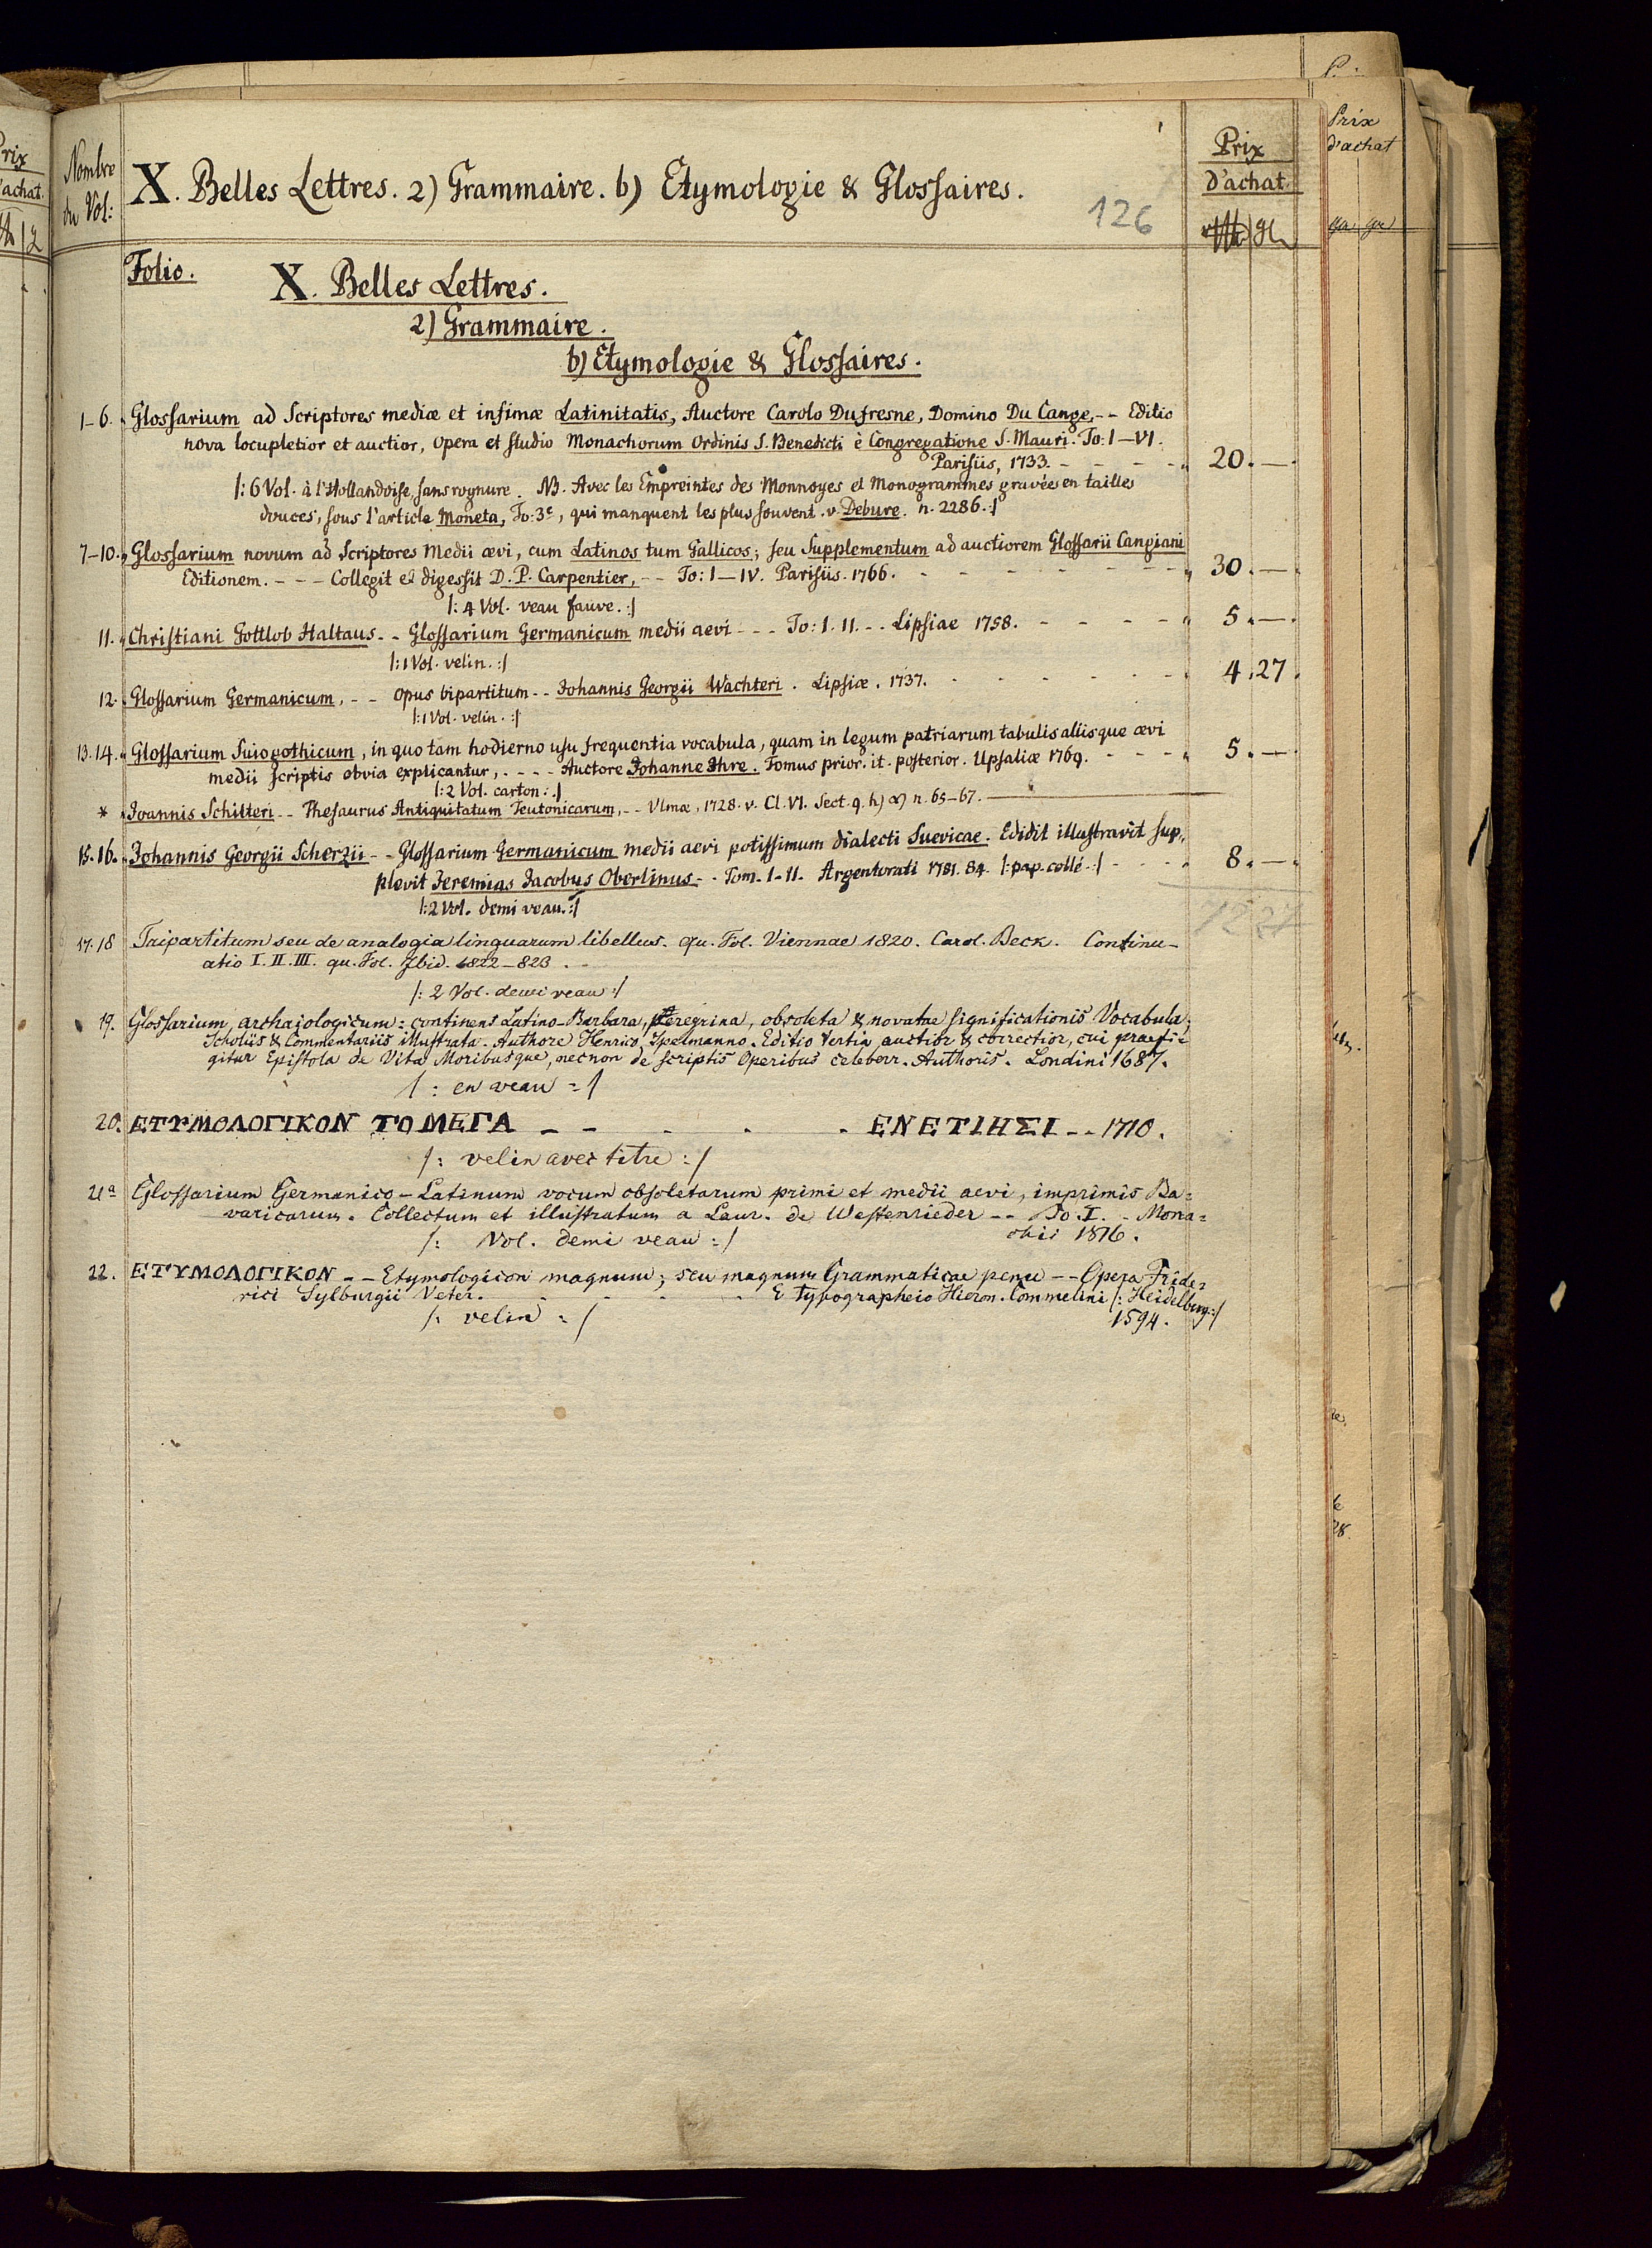 Nombre
du Vol:
X. Belles Lettres. 2) Grammaire. b) Etymologie & Glossaires.
126
Prix
d'achat.
Folio.
X. Belles Lettres.
2) Grammaire.
b) Etymologie & Glossaires.
1-6. Glossarium ad Scriptores mediæ et infimæ Latinitatis, Auctore Carolo Dufresne, Domino Du Cange, -- Editio
nova locupletior et auctior, opera et studio Monachorum Ordinis S. Benedicti è Congregatione S. Mauri. To: I-VI.
Parisiis, 1733. - - - - 20. —.
/: 6 Vol. à l'Hollandoise, sans rognure. NB. Avec les Empreintes des Monnoyes et Monogrammes gravées en tailles
douces, sous l'article Moneta, To: 3e, qui manquent les plus souvent. v. Debure. n. 2286. :/
7-10. Glossarium novum ad Scriptores medii ævi, cum Latinos tum Gallicos; seu Supplementum ad auctiorem Glossarii Cangiani
Editionem. - - - Collegit et digessit D. P. Carpentier, -- To: I-IV. Parisiis. 1766. - - - - 30. —.
/: 4 Vol. veau fauve. :/
11. Christiani Gottlob Haltaus. - - Glossarium Germanicum medii aevi - - - To: I. II. - - Lipsiae 1758. - - - - 5. —.
/: 1 Vol. velin. :/
12. Glossarium Germanicum, - - opus bipartitum - - Johannis Georgii Wachteri. Lipsiæ. 1737. - - - - 4. 27.
/: 1 Vol. velin. :/
13.14. Glossarium Suiogothicum, in quo tam hodierno usu frequentia vocabula, quam in legum patriarum tabulis aliisque ævi
medii scriptis obvia explicantur, - - - - Auctore Johanne Ihre. Tomus prior. it. posterior. Upsaliæ 1769. - - - 5. —.
/: 2 Vol. carton :/
* Joannis Schilteri - - Thesaurus Antiquitatum Teutonicarum, - - Vlmæ, 1728. v. Cl. VI. Sect. 9. h) α) n. 65-67.
15.16. Johannis Georgii Scherzii - - Glossarium Germanicum medii aevi potissimum dialecti Suevicae. Edidit illustravit sup-
plevit Jeremias Jacobus Oberlinus - - Tom. I-II. Argentorati 1781. 84. /: pap. collé :/ - - - 8. —.
/: 2 Vol. demi veau. :/
17.18 Tripartitum seu de analogia linguarum libellus. qu. Fol. Viennae 1820. Carol. Beck. Continu-
atio I. II. III. qu. Fol. Ibid. 1822-823.
/: 2 Vol. demi veau :/
19. Glossarium archaiologicum: continens Latino-Barbara, peregrina, obsoleta & novatae significationis Vocabula;
Scholiis & Commentariis illustrata. Authore Henrico Spelmanno. Editio tertia auctior & correctior, cui praefi=
gitur Epistola de Vita Moribusque, necnon de scriptis Operibus celeberr. Authoris. Londini 1687.
/: en veau :/
20. ΕΤΥΜΟΛΟΓΙΚΟΝ ΤΟ ΜΕΓΑ - - - - - ΕΝΕΤΙΗΣΙ - - 1710.
/: velin avec titre :/
21a Glossarium Germanico-Latinum vocum obsoletarum primi et medii aevi, imprimis Ba=
varicarum. Collectum et illustratum a Laur. de Westenrieder - - To. I. - Mona=
chii 1816.
/: Vol. demi veau :/
22. ΕΤΥΜΟΛΟΓΙΚΟΝ - - Etymologicon magnum; seu magnum Grammaticae penu - - Opera Fride=
rici Sylburgii Veter. - - - - E typographeio Hieron. Commelini /: Heidelberg :/
1594.
/: velin :/
Prix
d'achat